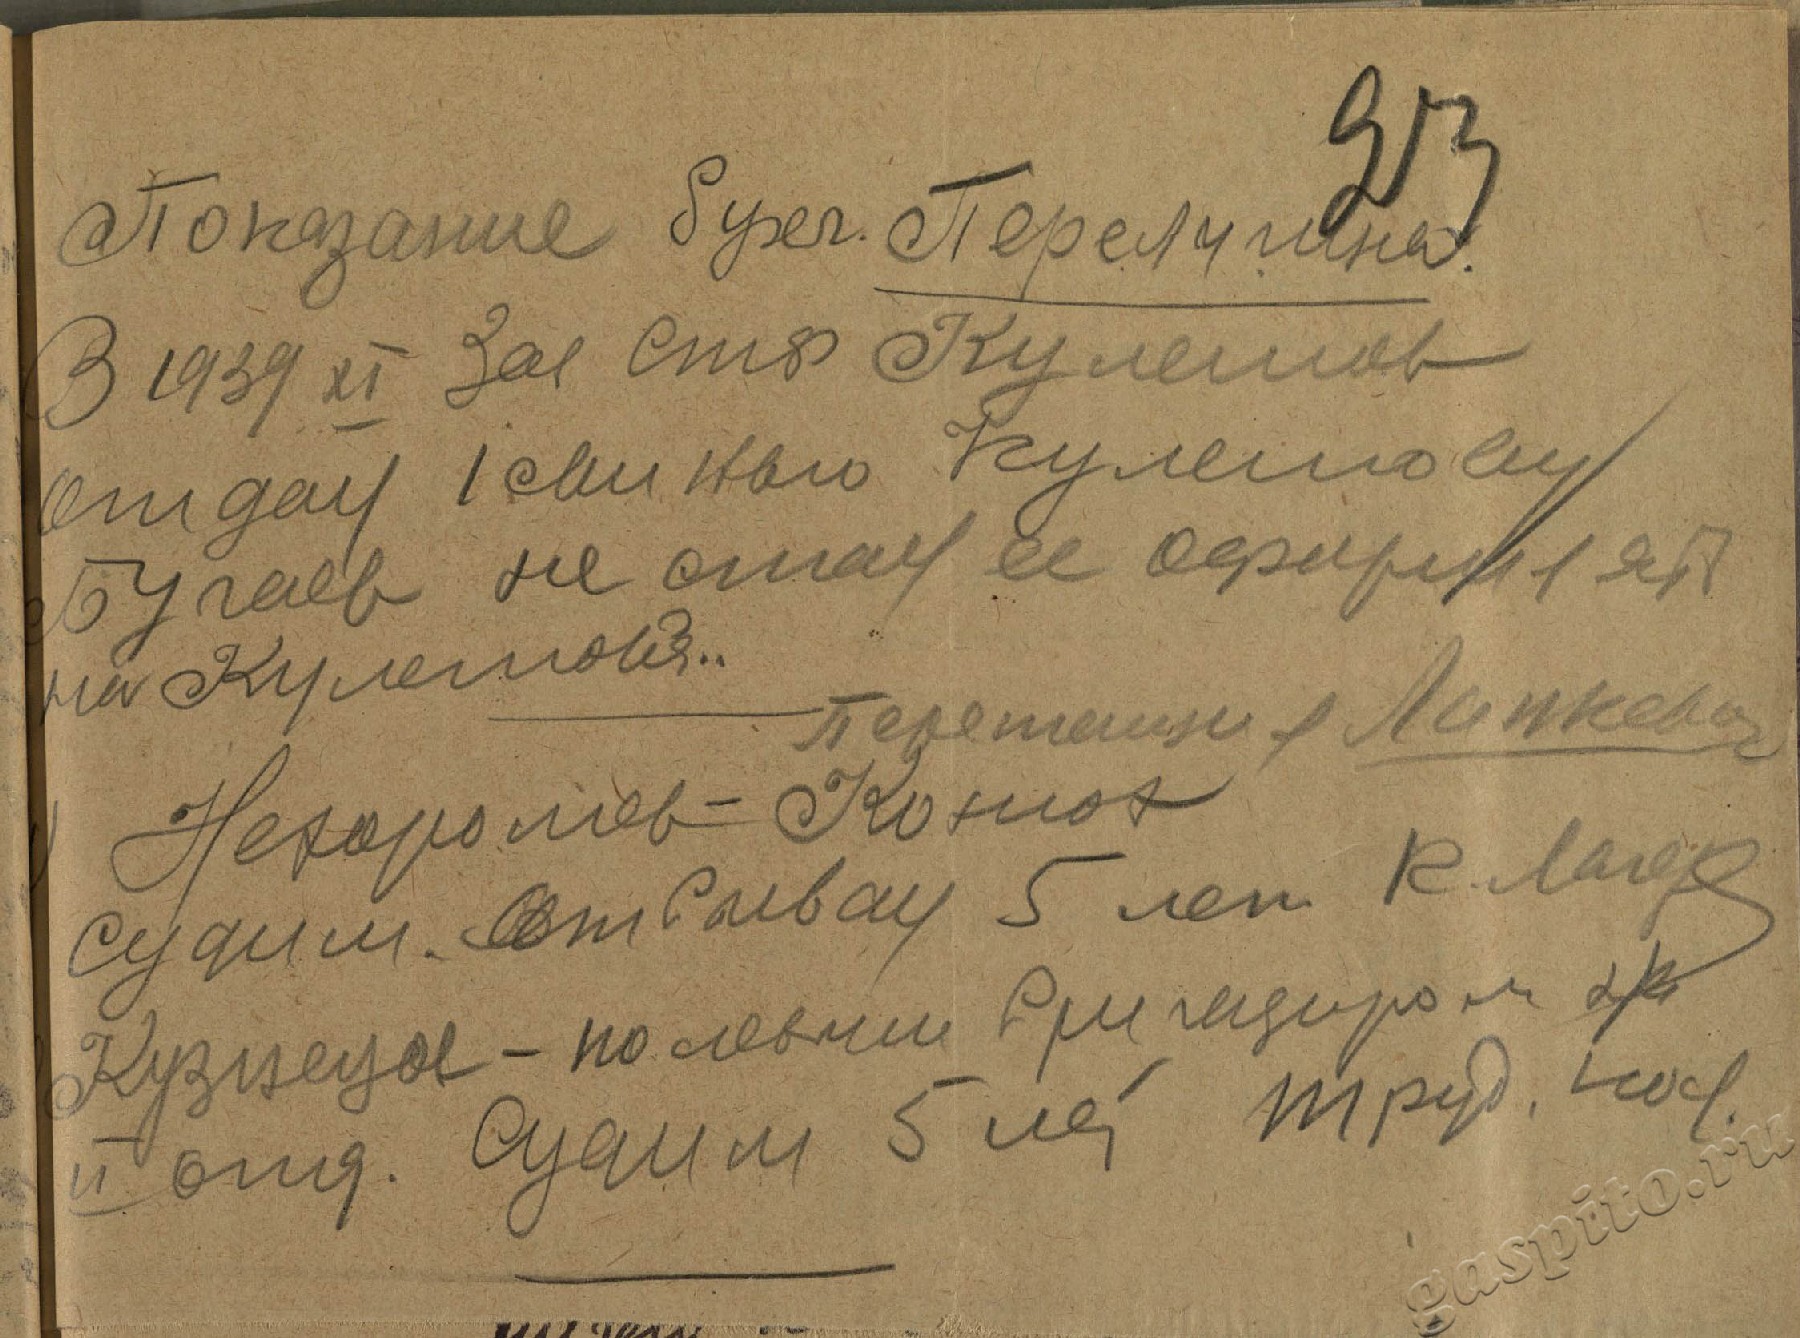 253
Показание бухг. Перелугина.
В 1939 XI Зав СТФ Кулешов
отдал 1 свинью Кулешову
Бугаев не стал ее оформлят
на Кулешова..
Перетащил Липкевич
Нехорошев - Конюх
судим. Отбывал 5 лет К. Лагер
Кузнецов - полевым бригадиром
II отд. Судим 5 лет труд. кол.
gaspito.ru